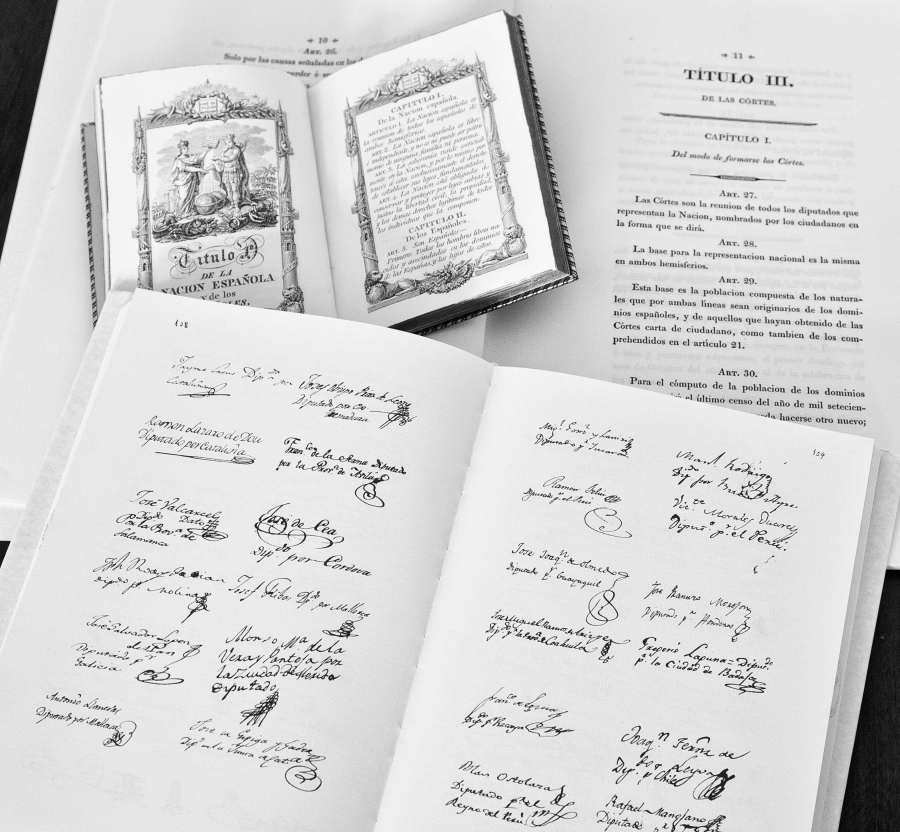 10
ART. 26.
Solo por las causas señaladas en los
perder ó
Título Pº
DE LA
NACION ESPAÑOLA
y de los
CAPITULO I.
De la Nacion española.
ARTICULO 1. La Nacion española es la
reunion de todos los españoles de
ambos hemisferios.
ART. 2. La Nacion española es libre
é independiente, y no es ni puede ser patri-
monio de ninguna familia ni persona.
ART. 3. La soberanía reside esencial-
mente en la Nacion, y por lo mismo per-
tenece á esta exclusivamente el derecho
de establecer sus leyes fundamentales.
ART. 4. La Nacion está obligada á
conservar y proteger por leyes sabias y
justas la libertad civil, la propiedad,
y los demas derechos legítimos de todos
los individuos que la componen.
CAPITULO II.
De los Españoles.
ART. 5. Son Españoles:
primero: Todos los hombres libres na-
cidos y avecindados en los dominios
de las Españas, y los hijos de estos.
11
TÍTULO III.
DE LAS CÓRTES.
CAPÍTULO I.
Del modo de formarse las Córtes.
ART. 27.
Las Córtes son la reunion de todos los diputados que
representan la Nacion, nombrados por los ciudadanos en
la forma que se dirá.
ART. 28.
La base para la representacion nacional es la misma
en ambos hemisferios.
ART. 29.
Esta base es la poblacion compuesta de los natura-
les que por ambas líneas sean originarios de los domi-
nios españoles, y de aquellos que hayan obtenido de las
Córtes carta de ciudadano, como tambien de los com-
prehendidos en el artículo 21.
ART. 30.
Para el cómputo de la poblacion de los dominios
el último censo del año de mil setecien-
hacerse otro nuevo;
128
Cataluña
Diputado por
Ramon Lazaro de Dou
Diputado por Cataluña
de la Serna Diputado
por la Provª de Avila
José Valcarcel
Dato
por la Provª de
Salamanca
José de Cea
Dipº por Cordova
dipdo pr Molina
Josef Dipdo por Mallorca
José Salvador Lopez
del Pan
Diputado por
Galicia
Alonso Mª de la
Vera y Pantoja por
la Ciudad de Merida
Diputado
Antonio Llaneras
Diputado por Mallorca
José de Espiga y Gadea
Dipdo de la Junta de Cataluña
129
Diputado por Yucatan
Manl. Rodrigo
Dip por Buens Ayres
Ramon Feliu
Diputado por el Perú
Victe Morales Duarez
Diputº p. el Perú.
José Joaqn. de Olmedo
Diputado pr Guayaquil
José Francisco Morejon
Diputado pr Honduras
José Miguel Ramos de Arizpe
Dipo por la Prova de Coahuila
Gregorio Laguna = Diputdo
pr. la Ciudad de Badajoz
Dip. pr Vizcaya
Joaqn. Fernz de
Leyva
Dipo. pr Chile
Blas Ostolaza
Diputado pr el
Reyno del Perú
Rafael Manglano
Diputado